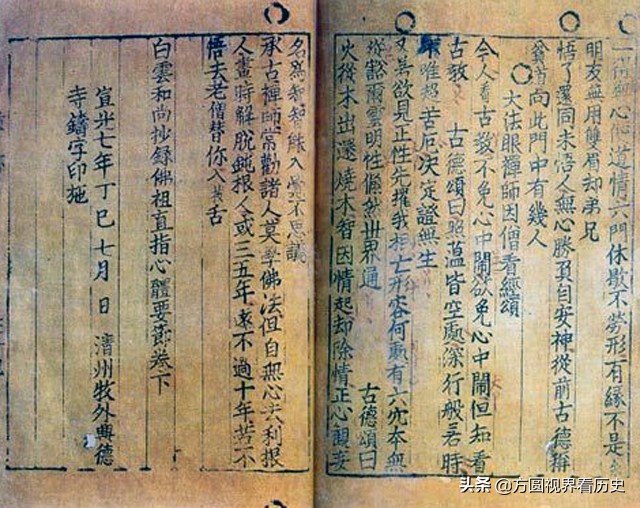 一得無心便道情六門休歇不勞形有緣不是
朋友無用雙眉却弟兄
悟了還同未悟人無心勝負自安神從前古德稱
向此門中有幾人
大法眼禪師因僧看經頌
今人看古教不免心中鬧欲免心中鬧但知看
古教 古德頌曰照蘊皆空處深行般若時
唯超苦厄決定證無生
欲見正性先 我相亡形容何處有六穴本無
豁爾靈明性翛然世界通 古德頌曰
火從木出還燒木智因情起却除情正心觀妄
名爲智智 入 不思議
承古禪師常勸諸人莫學佛法但自無心去利根
人晝時解脫鈍根人或三五年遠不過十年若不
悟去老僧替你入拔舌
白雲和尚抄錄佛祖直指心體要節卷下
宣光七年丁巳七月 日 清州牧外興德
寺鑄字印施
头条 @方圆视界看历史